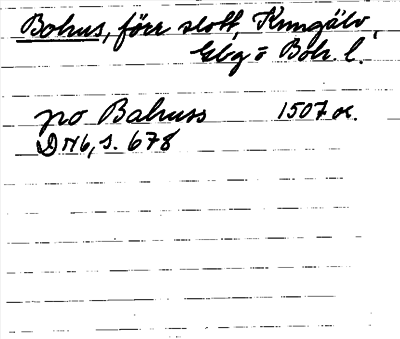 Bohus, förr slott, Kungälv,
Gbg o Boh. l.
po Bahuss 1507 or.
DN 6, s. 678